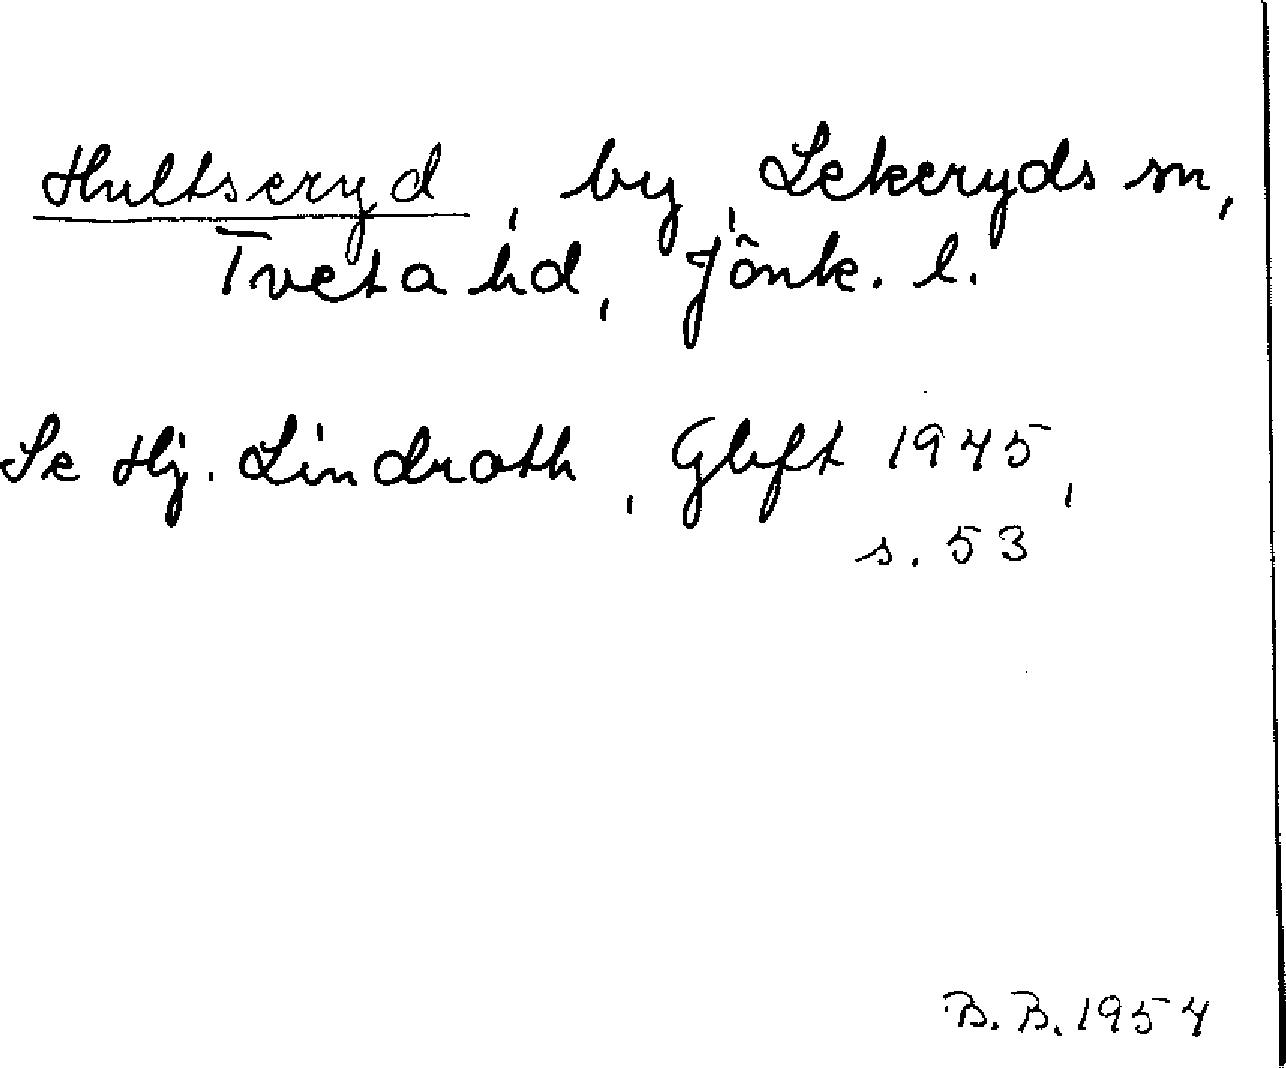 Hultseryd, by, Lekeryds sn,
Tveta hd, Jönk. l.
Se Hj. Lindroth, Gbft 1945,
s. 53
B. B. 1954